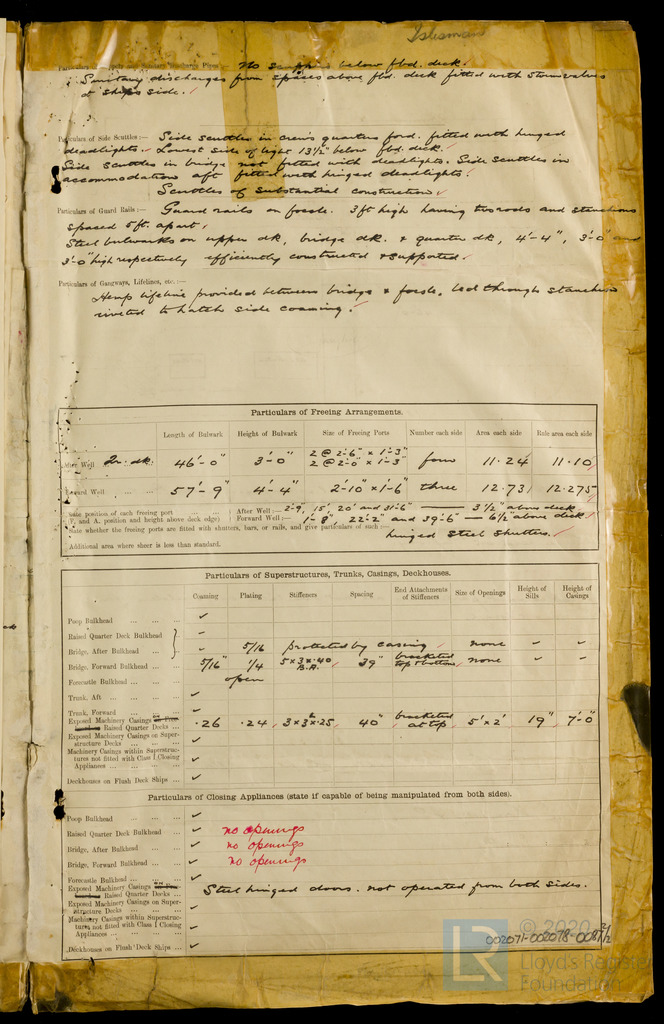 Islesman
No scuppers below fbd. deck.
Sanitary discharges from spaces above fbd. deck fitted with storm valves
at ships side.
Particulars of Side Scuttles:— Side scuttles in crew's quarters ford. fitted with hinged
deadlights. Lowest side of light 13½" below fbd. deck.
Side scuttles in bridge not fitted with deadlights. Side scuttles in
accommodation aft fitted with hinged deadlights.
Scuttles of substantial construction.
Particulars of Guard Rails:— Guard rails on focsle. 3ft high having two rods and stanchions
spaced 5ft. apart.
Steel bulwarks on upper dk, bridge dk. & quarter dk, 4'-4", 3'-0" and
3'-0" high respectively efficiently constructed & supported.
Particulars of Gangways, Lifelines, etc.:—
Hemp lifeline provided between bridge & focsle, led through stanchions
riveted to hatch side coaming.
Particulars of Freeing Arrangements.
Length of Bulwark Height of Bulwark Size of Freeing Ports Number each side Area each side Rule area each side
After Well Qr. dk. 46'-0" 3'-0" 2 @ 2'-6" x 1'-3" four 11.24 11.10
2 @ 2'-0" x 1'-3"
Forward Well 57'-9" 4'-4" 2'-10" x 1'-6" three 12.73 12.275
State position of each freeing port After Well:— 2'-9, 15', 20' and 31'-6" — 3½" above deck
(F. and A. position and height above deck edge) Forward Well:— 1'-8" 22'-2" and 39'-6" — 6½" above deck.
State whether the freeing ports are fitted with shutters, bars, or rails, and give particulars of such:— hinged steel shutters.
Additional area where sheer is less than standard.
Particulars of Superstructures, Trunks, Casings, Deckhouses.
Coaming Plating Stiffeners Spacing End Attachments of Stiffeners Size of Openings Height of Sills Height of Casings
Poop Bulkhead ... ✓
Raised Quarter Deck Bulkhead ✓
Bridge, After Bulkhead ... ✓ 5/16 protected by casing none ✓ ✓
Bridge, Forward Bulkhead ... 5/16" 1/4 5 x 3 x .40 B.A. 39" bracketed top & bottom none ✓ ✓
Forecastle Bulkhead ... open
Trunk, Aft ... ✓
Trunk, Forward ...
Exposed Machinery Casings
Raised Quarter Decks ... .26 .24 3 x 3 x .25 40" bracketed at top 5' x 2' 19" 7'-0"
Exposed Machinery Casings on Super-
structure Decks ... ✓
Machinery Casings within Superstruc-
tures not fitted with Class 1 Closing
Appliances ... ✓
Deckhouses on Flush Deck Ships ... ✓
Particulars of Closing Appliances (state if capable of being manipulated from both sides).
Poop Bulkhead ... ✓
Raised Quarter Deck Bulkhead ✓ no openings
Bridge, After Bulkhead ... ✓ no openings
Bridge, Forward Bulkhead ... ✓ no openings
Forecastle Bulkhead ... ✓
Exposed Machinery Casings
Raised Quarter Decks ... Steel hinged doors. not operated from both sides.
Exposed Machinery Casings on Super-
structure Decks ... ✓
Machinery Casings within Superstruc-
tures not fitted with Class 1 Closing
Appliances ... ✓
Deckhouses on Flush Deck Ships ... ✓
© 2020
LR
Lloyd's Register
Foundation
002071-002078-0087 2/2